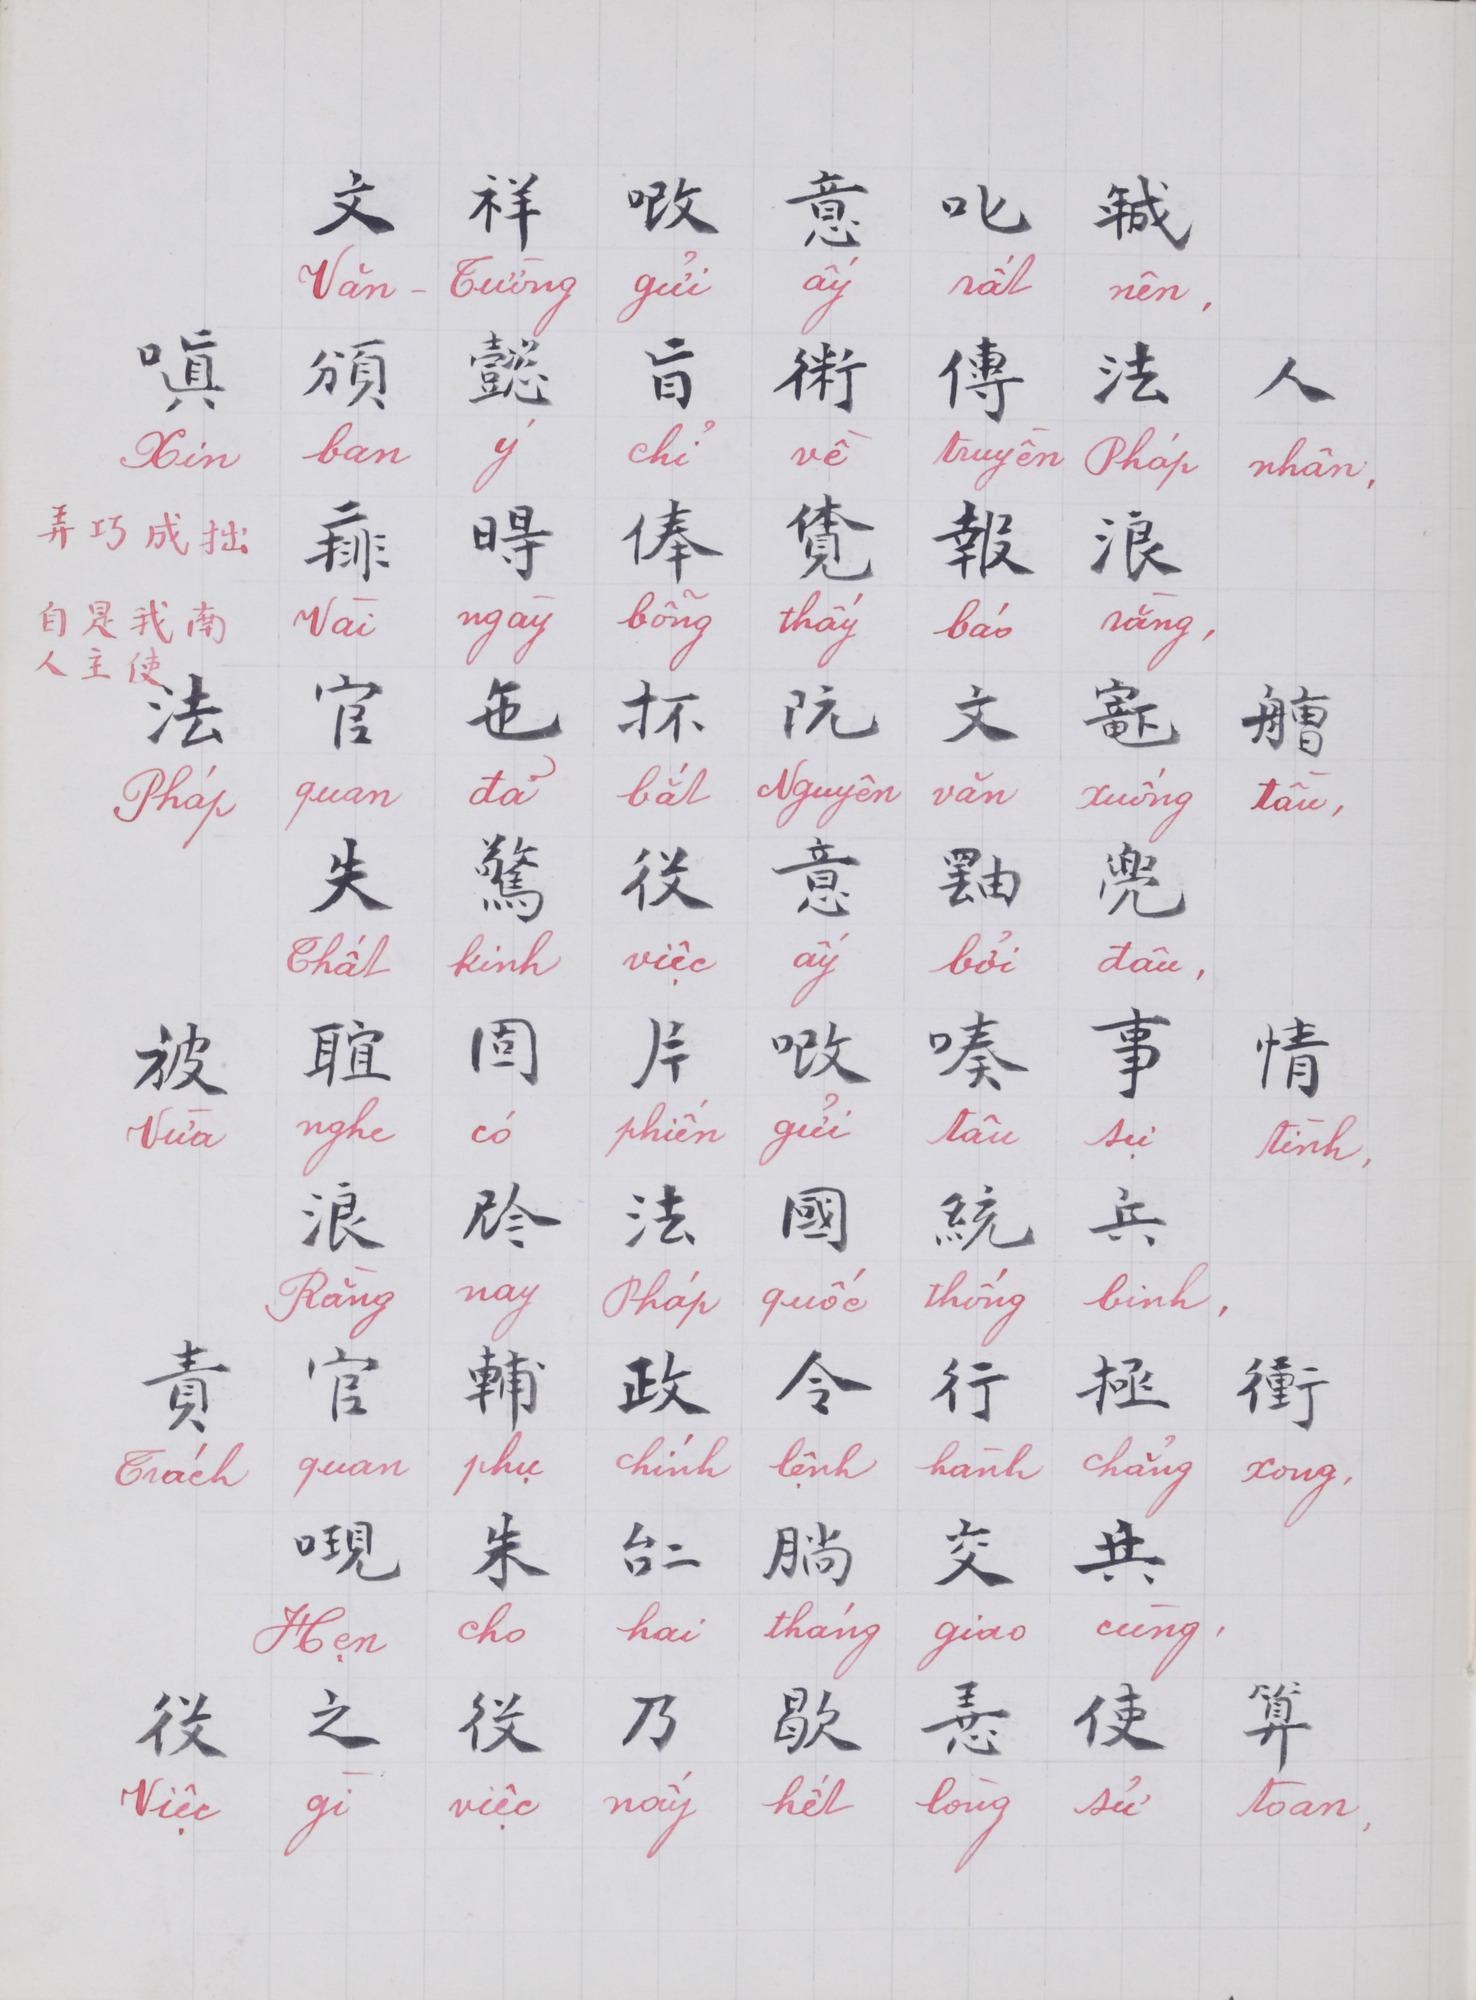 文祥㗂意叱𢧚
Văn-Tường gửi ấy rất nên,
嗔頒懿旨術傳法人
Xin ban ý chỉ về truyền Pháp nhân,
𠄧𣈗俸覓報浪
Vài ngày bỗng thấy báo rằng,
弄巧成拙
自是我南
人主使
法官㐌抔阮文𡨺艚
Pháp quan đã bắt Nguyên văn xuống tầu,
失驚役意𤳸兜
Thất kinh việc ấy bởi đâu,
被𦖑固片㗂嗪事情
Vừa nghe có phiến gửi tâu sự tình,
浪𫢩法國統兵
Rằng nay Pháp quốc thống binh,
責官輔政令行拯衝
Trách quan phụ chính lệnh hành chẳng xong,
哯朱𠄩𣎃交共
Hẹn cho hai tháng giao cùng,
役之役乃歇𢚸使算
Việc gì việc nấy hết lòng sử toan,